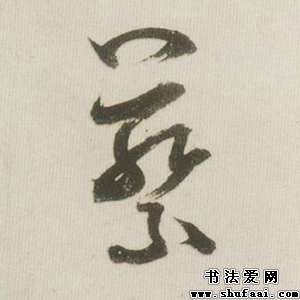 蔡
书法爱网
www.shufaai.com